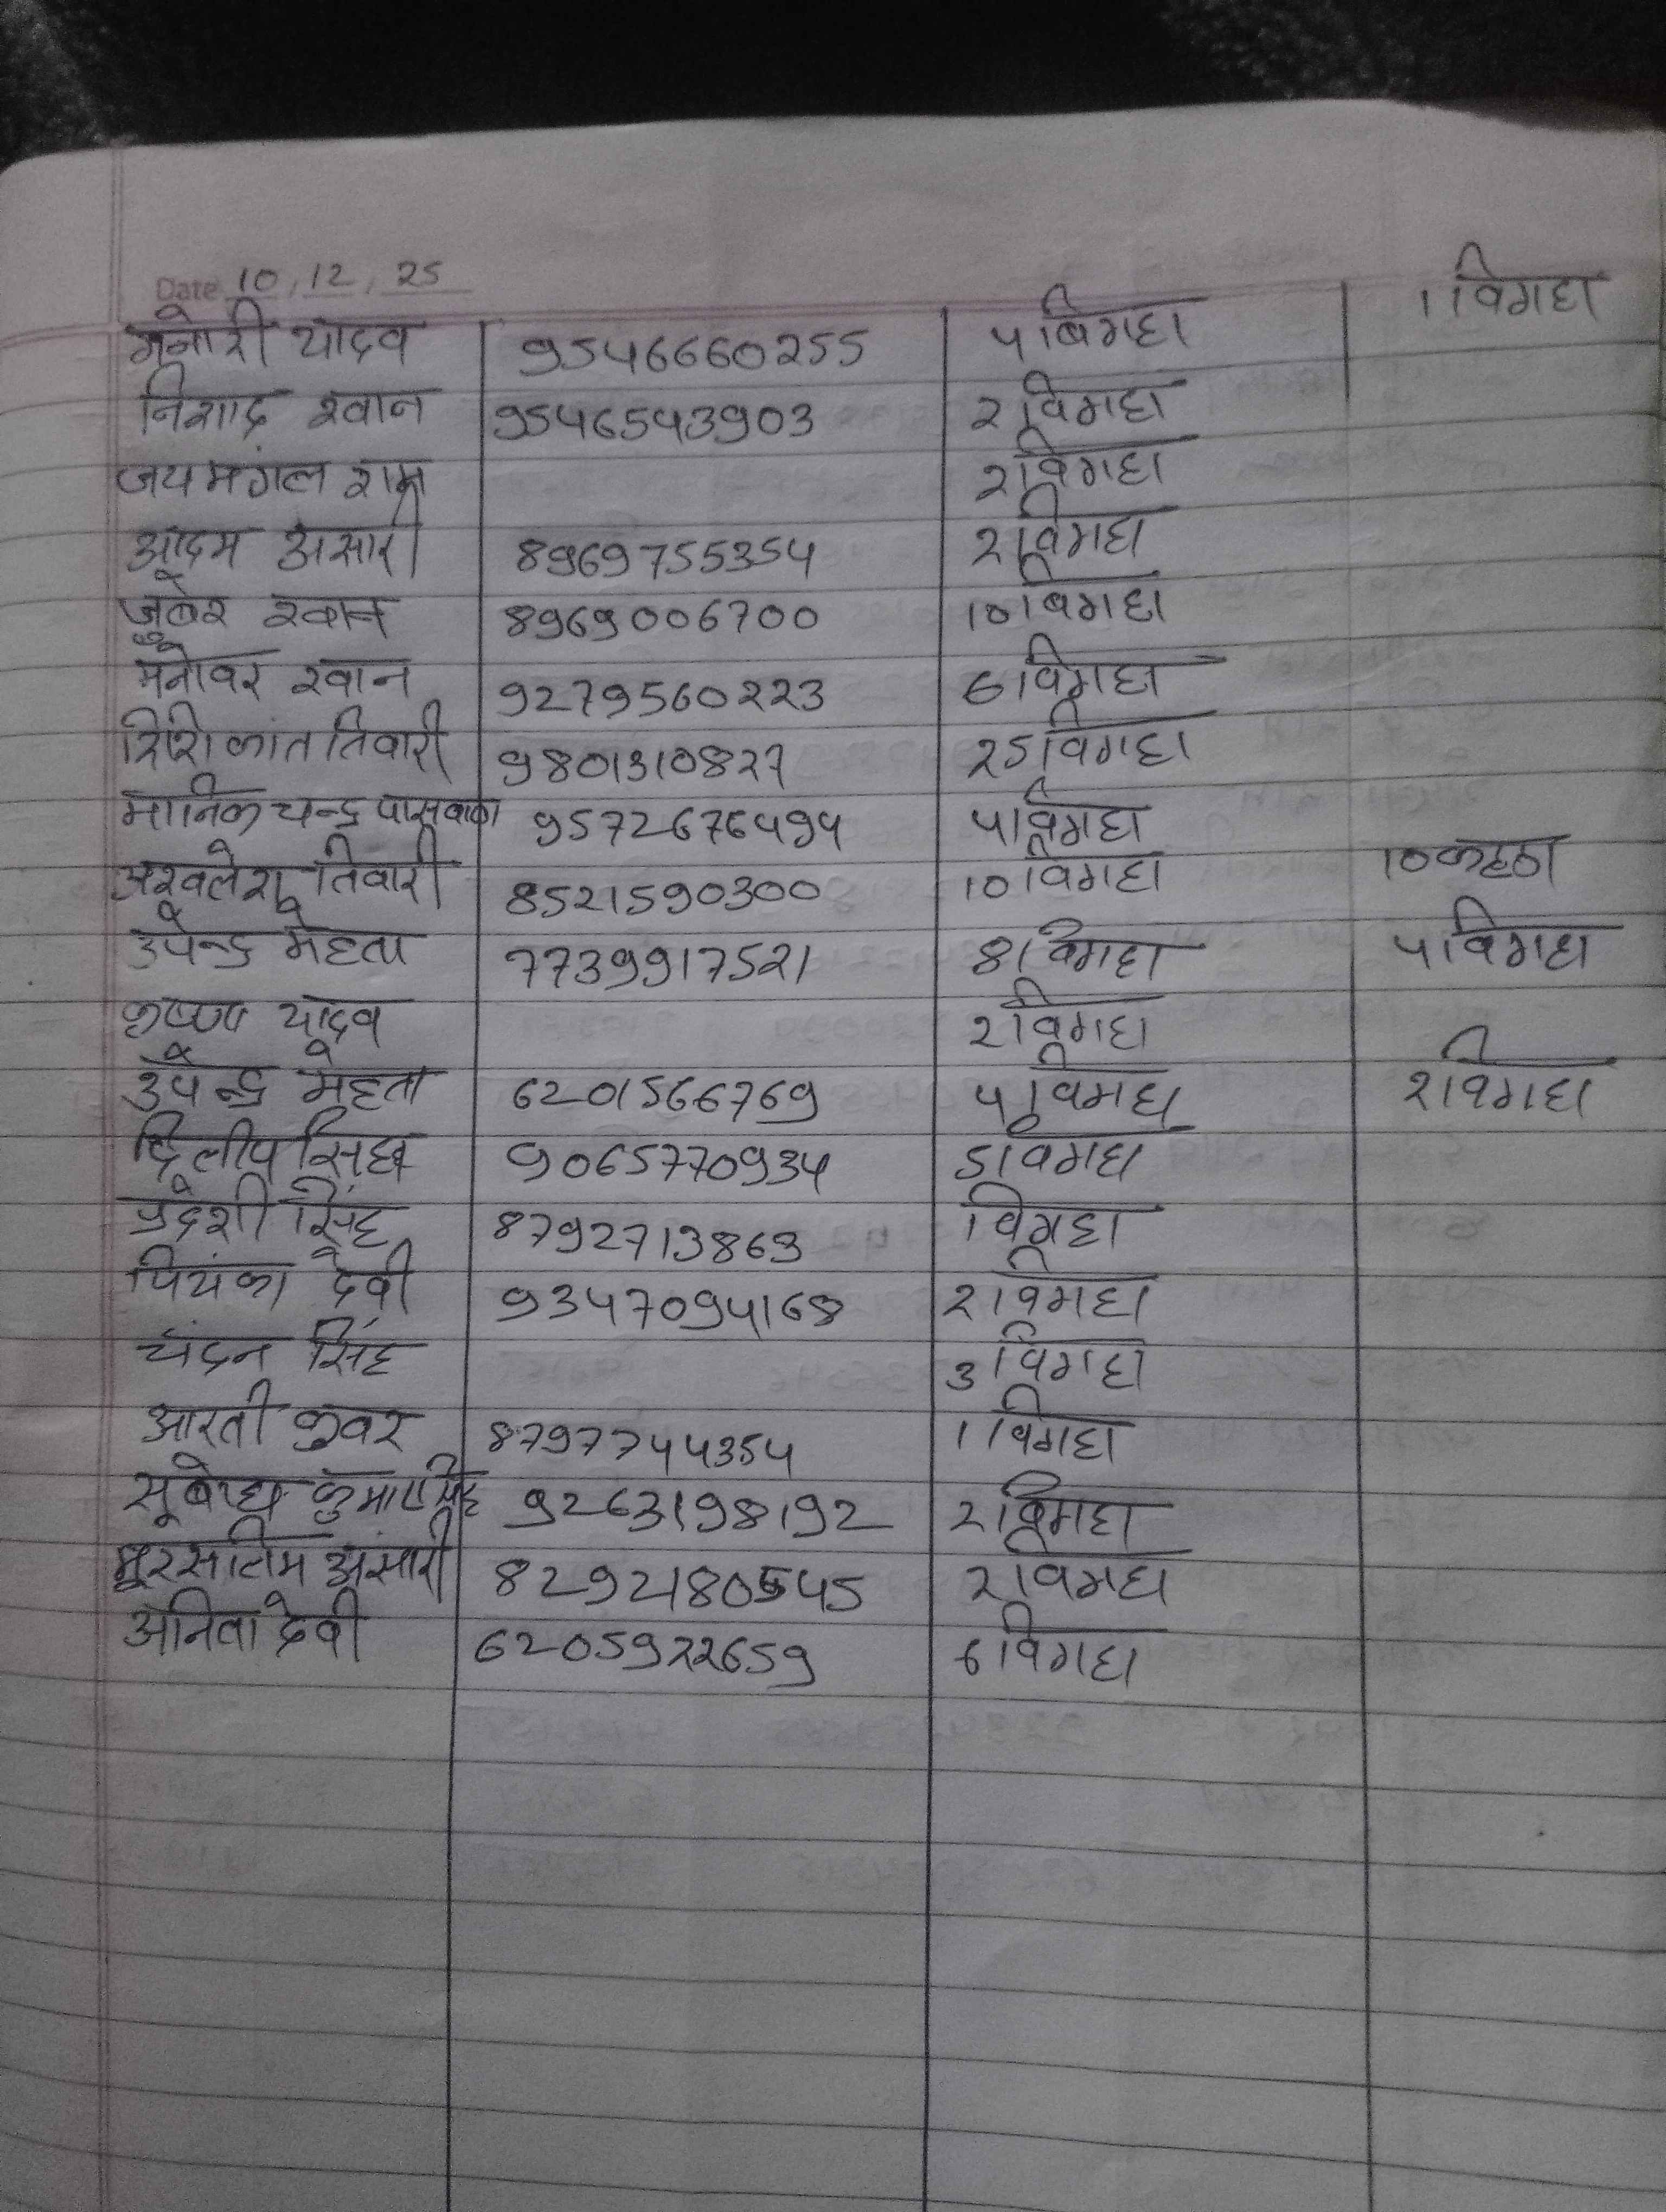 Date 10, 12, 25
मनोरी यादव 9546660255 4 बिगहा 1 विगहा
निशाद खान 9546543903 2 विगहा
जयमंगल राम 2 विगहा
आदम अंसारी 8969755354 2 विगहा
जुबेर खान 8969006700 10 बिगहा
मनोवर खान 9279560223 6 विगहा
शिशिकांत तिवारी 9801310827 25 विगहा
मानिक चन्द्र पासवान 9572676494 4 विगहा
अखलेश तिवारी 8521590300 10 विगहा 10 कठ्ठा
उपेन्द्र मेहता 7739917521 8 विगहा 4 विगहा
कृष्णा यादव 2 विगहा
उपेन्द्र मेहता 6201566769 4 विगहा 2 विगहा
दिलीप सिंह 9065770934 5 विगहा
प्रदेशी सिंह 8792713863 1 विगहा
पियंका देवी 9347094168 2 विगहा
चंदन सिंह 3 विगहा
आरती कुवर 8797744354 1 विगहा
सूबोध कुमार सिंह 9263198192 2 विगहा
मुरसलिम अंसारी 8292180545 2 विगहा
अनिता देवी 6205922659 6 विगहा